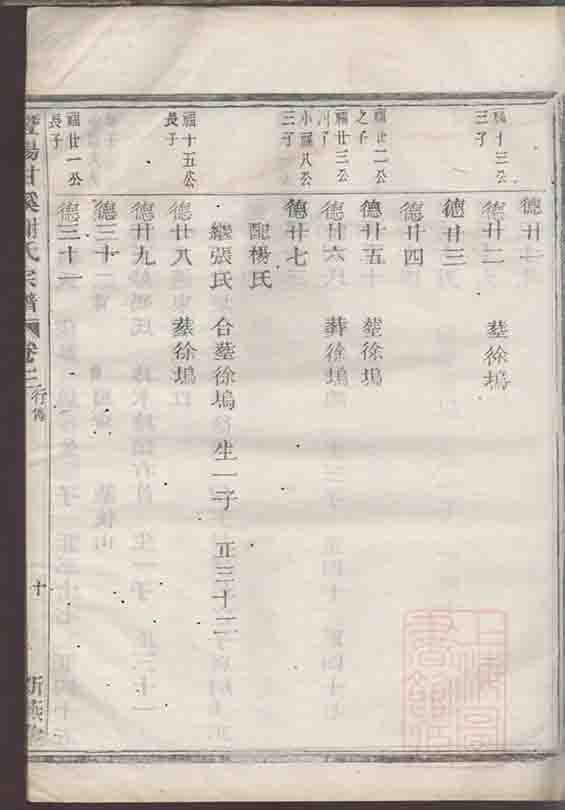 德廿一
福十三公
三子
德廿二 墓徐塢
德廿三
德廿四
福廿二公
之子
德廿五 墓徐塢
福廿三公
德廿六 葬徐塢
小福八公
三子
德廿七
配楊氏
繼張氏 合墓徐塢 生一子 正三十二
福十五公
長子
德廿八 墓徐塢
德廿九
德三十
福廿一公
長子
德三十一
暨陽甘溪謝氏宗譜 卷三 行傳 十